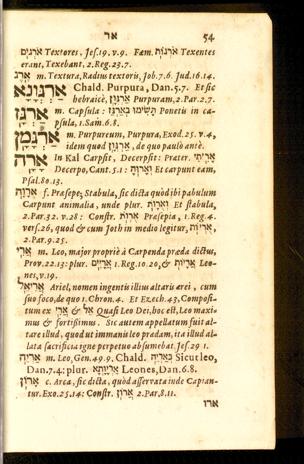 54 אר
אֹרְגִים Textores, Jes. 19. v. 9. Fæm. אֹרְגוֹת Texentes
erant, Texebant. 2. Reg. 23. 7.
אֶרֶג m. Textura, Radius textoris, Job. 7. 6. Jud. 16. 14.
אַרְגְּוָנָא Chald. Purpura, Dan. 5. 7. Et sic
hebraicè, אַרְגְּוָן Purpuram, 2. Par. 2. 7.
אַרְגַּז m. Capsula: תָּשִׂימוּ בָאַרְגַּז Ponetis in capsula,
1. Sam. 6. 8.
אַרְגָּמָן m. Purpureum, Purpura, Exod. 25. v. 4,
idem quod אַרְגְּוָן, de quo paulò antè.
אָרָה In Kal Carpsit, Decerpsit: Præter. אָרִיתִי
Decerpo, Cant. 5. 1: Et carpunt eam,
Psal. 80. 13.
f. Præsepe, Stabula, sic dicta quòd ibi pabulum
Carpunt animalia, unde plur. Et stabula,
2. Par. 32. v. 28: Constr. Præsepia, 1. Reg. 4.
vers. 26, quod & cum Joth in medio legitur,
2. Par. 9. 25.
אֲרִי m. Leo, major propriè à Carpenda præda dictus,
Prov. 22. 13: plur. 1. Reg. 10. 20, & Leones,
v. 19.
אֲרִיאֵל Ariel, nomen ingentis illius altaris ærei, cum
suo foco, de quo 1. Chron. 4. Et Ezech. 43, Compositum
ex אֲרִי & אֵל Quasi Leo Dei, hoc est, Leo maximus
& fortissimus. Sic autem appellatum fuit altare
illud, quod ut immanis leo prædam, ita illud allata
sacrificia igne perpetuo absumebat. Jes. 29 1.
אַרְיֵה m. Leo, Gen. 49. 9. Chald. Sicut leo,
Dan. 7. 4: plur. אַרְיָוָתָא Leones, Dan. 6. 8.
אָרוֹן c. Arca, sic dicta, quòd asservata inde Captantur.
Exo. 25. 14: Constr. אֲרוֹן 2. Par. 8. 11.
ארו